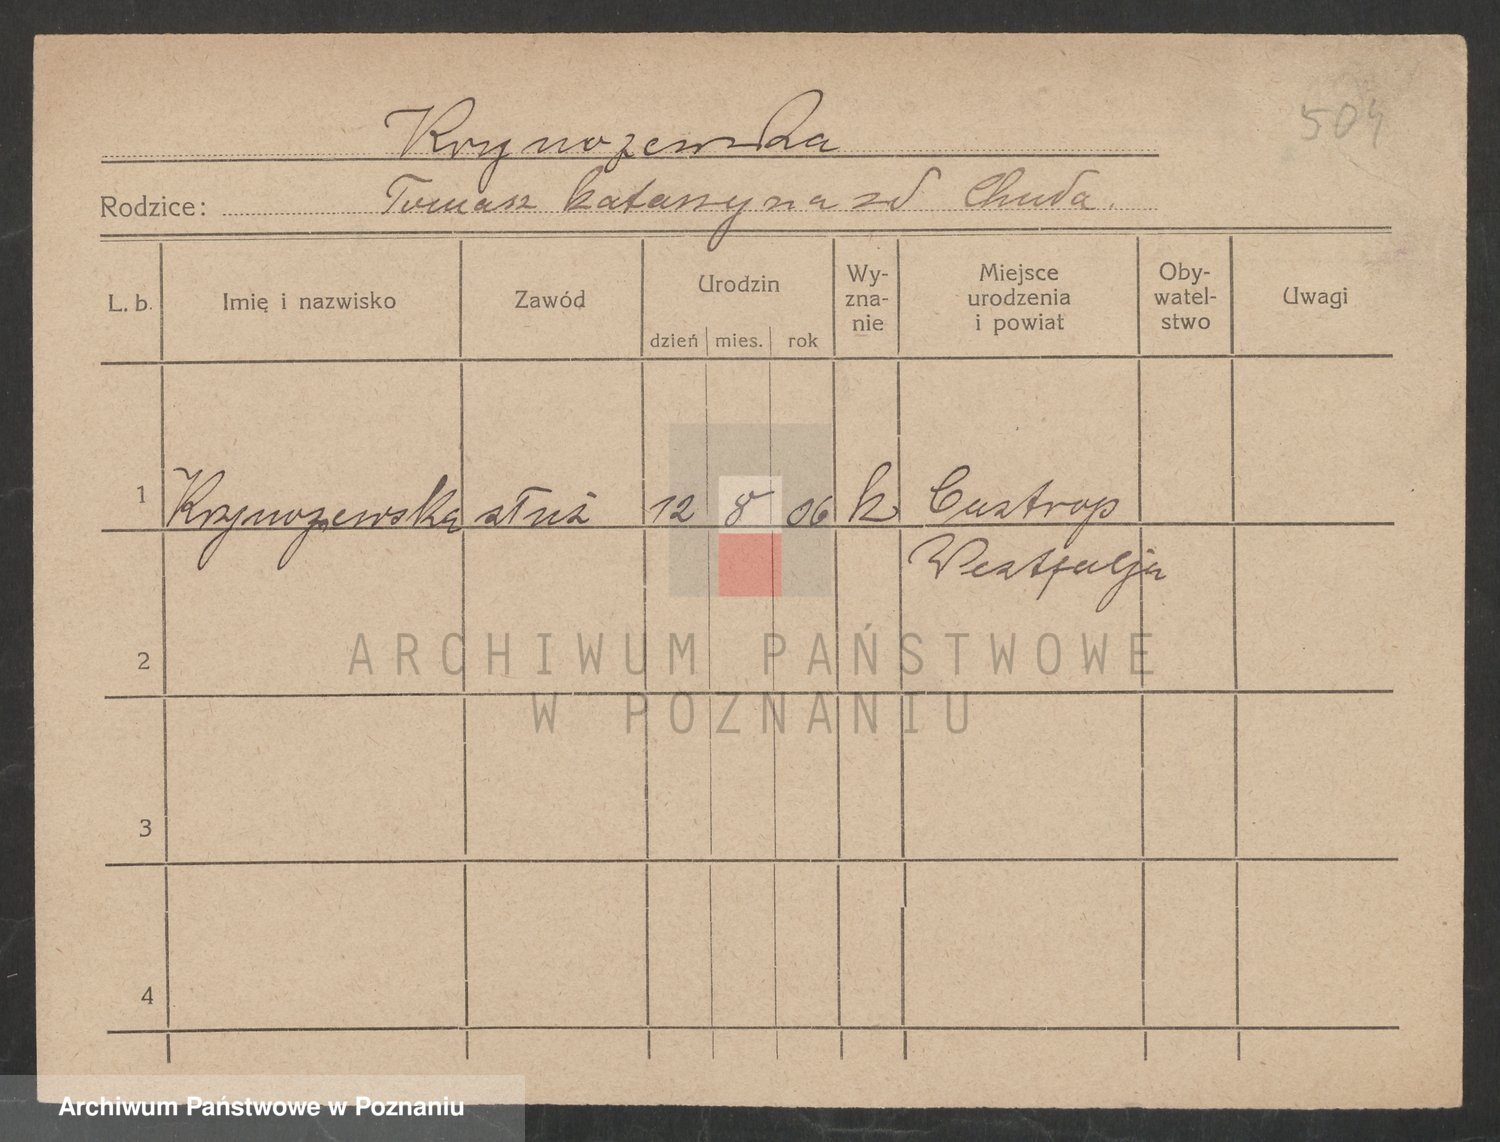 504
Krynozewska
Rodzice: Tomasz Katarzyna zd Chuda.
L. b. Imię i nazwisko Zawód Urodzin dzień mies. rok Wy-zna-nie Miejsce urodzenia i powiat Oby-watel-stwo Uwagi
1 Krynozewska służ 12 8 06 k Castrop
Westfalja
2
3
4
ARCHIWUM PAŃSTWOWE
W POZNANIU
Archiwum Państwowe w Poznaniu